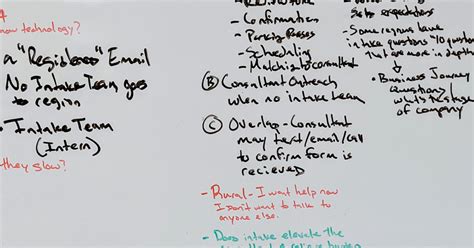 now technology?
a "Registered" Email
No Intake Team goes
to region
• Intake Team
(Intern)
they slow?
- Confirmation
- Parking Passes
- Scheduling
- Matching to consultant
Ⓑ Consultant Outreach
when no intake team
Ⓒ Overlap - Consultant
may text/email/call
to confirm form is
recieved
- Rural - I want help now
I don't want to talk to
anyone else.
- Does intake elevate the
Sets expectations
- Some regions have
intake questions "10 questions
that are more in depth
• Business Journey
questions/
what's the stage
of company